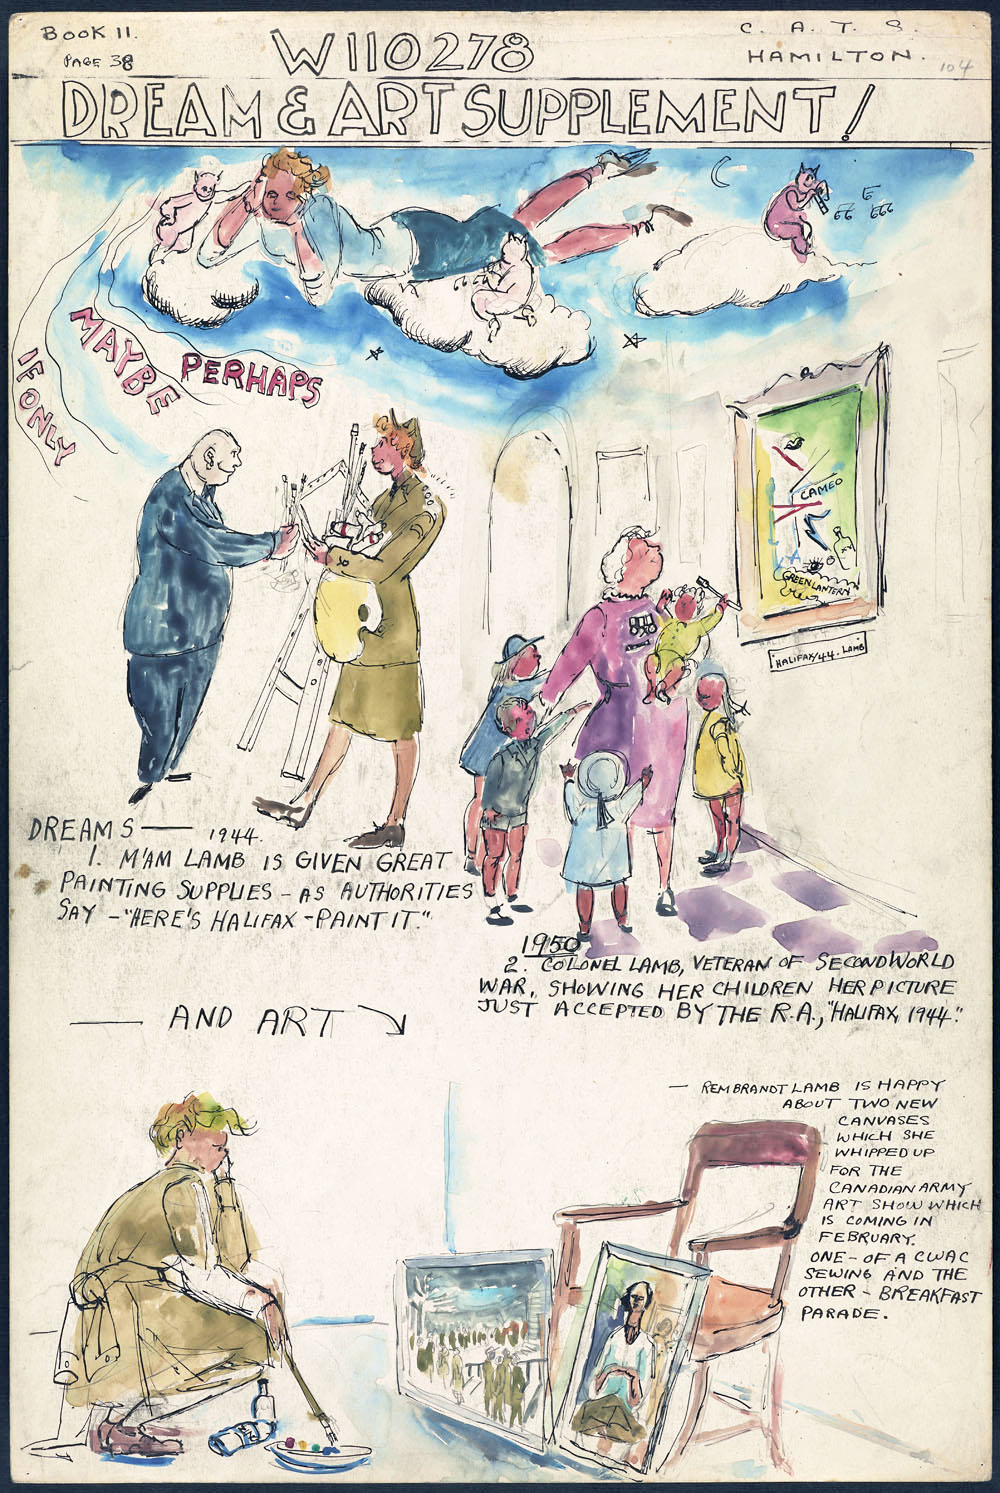 BOOK 11.
PAGE 38
W110278
C. A. T. S.
HAMILTON.
104
DREAM & ART SUPPLEMENT!
IF ONLY
MAYBE
PERHAPS
CAMEO
GREEN LANTERN
HALIFAX/44. LAMB
DREAMS — 1944.
1. M'AM LAMB IS GIVEN GREAT
PAINTING SUPPLIES - AS AUTHORITIES
SAY - "HERE'S HALIFAX - PAINT IT."
1950
2. COLONEL LAMB, VETERAN OF SECOND WORLD
WAR, SHOWING HER CHILDREN HER PICTURE
JUST ACCEPTED BY THE R.A., "HALIFAX, 1944."
— AND ART
— REMBRANDT LAMB IS HAPPY
ABOUT TWO NEW
CANVASES
WHICH SHE
WHIPPED UP
FOR THE
CANADIAN ARMY
ART SHOW WHICH
IS COMING IN
FEBRUARY.
ONE - OF A CWAC
SEWING AND THE
OTHER - BREAKFAST
PARADE.